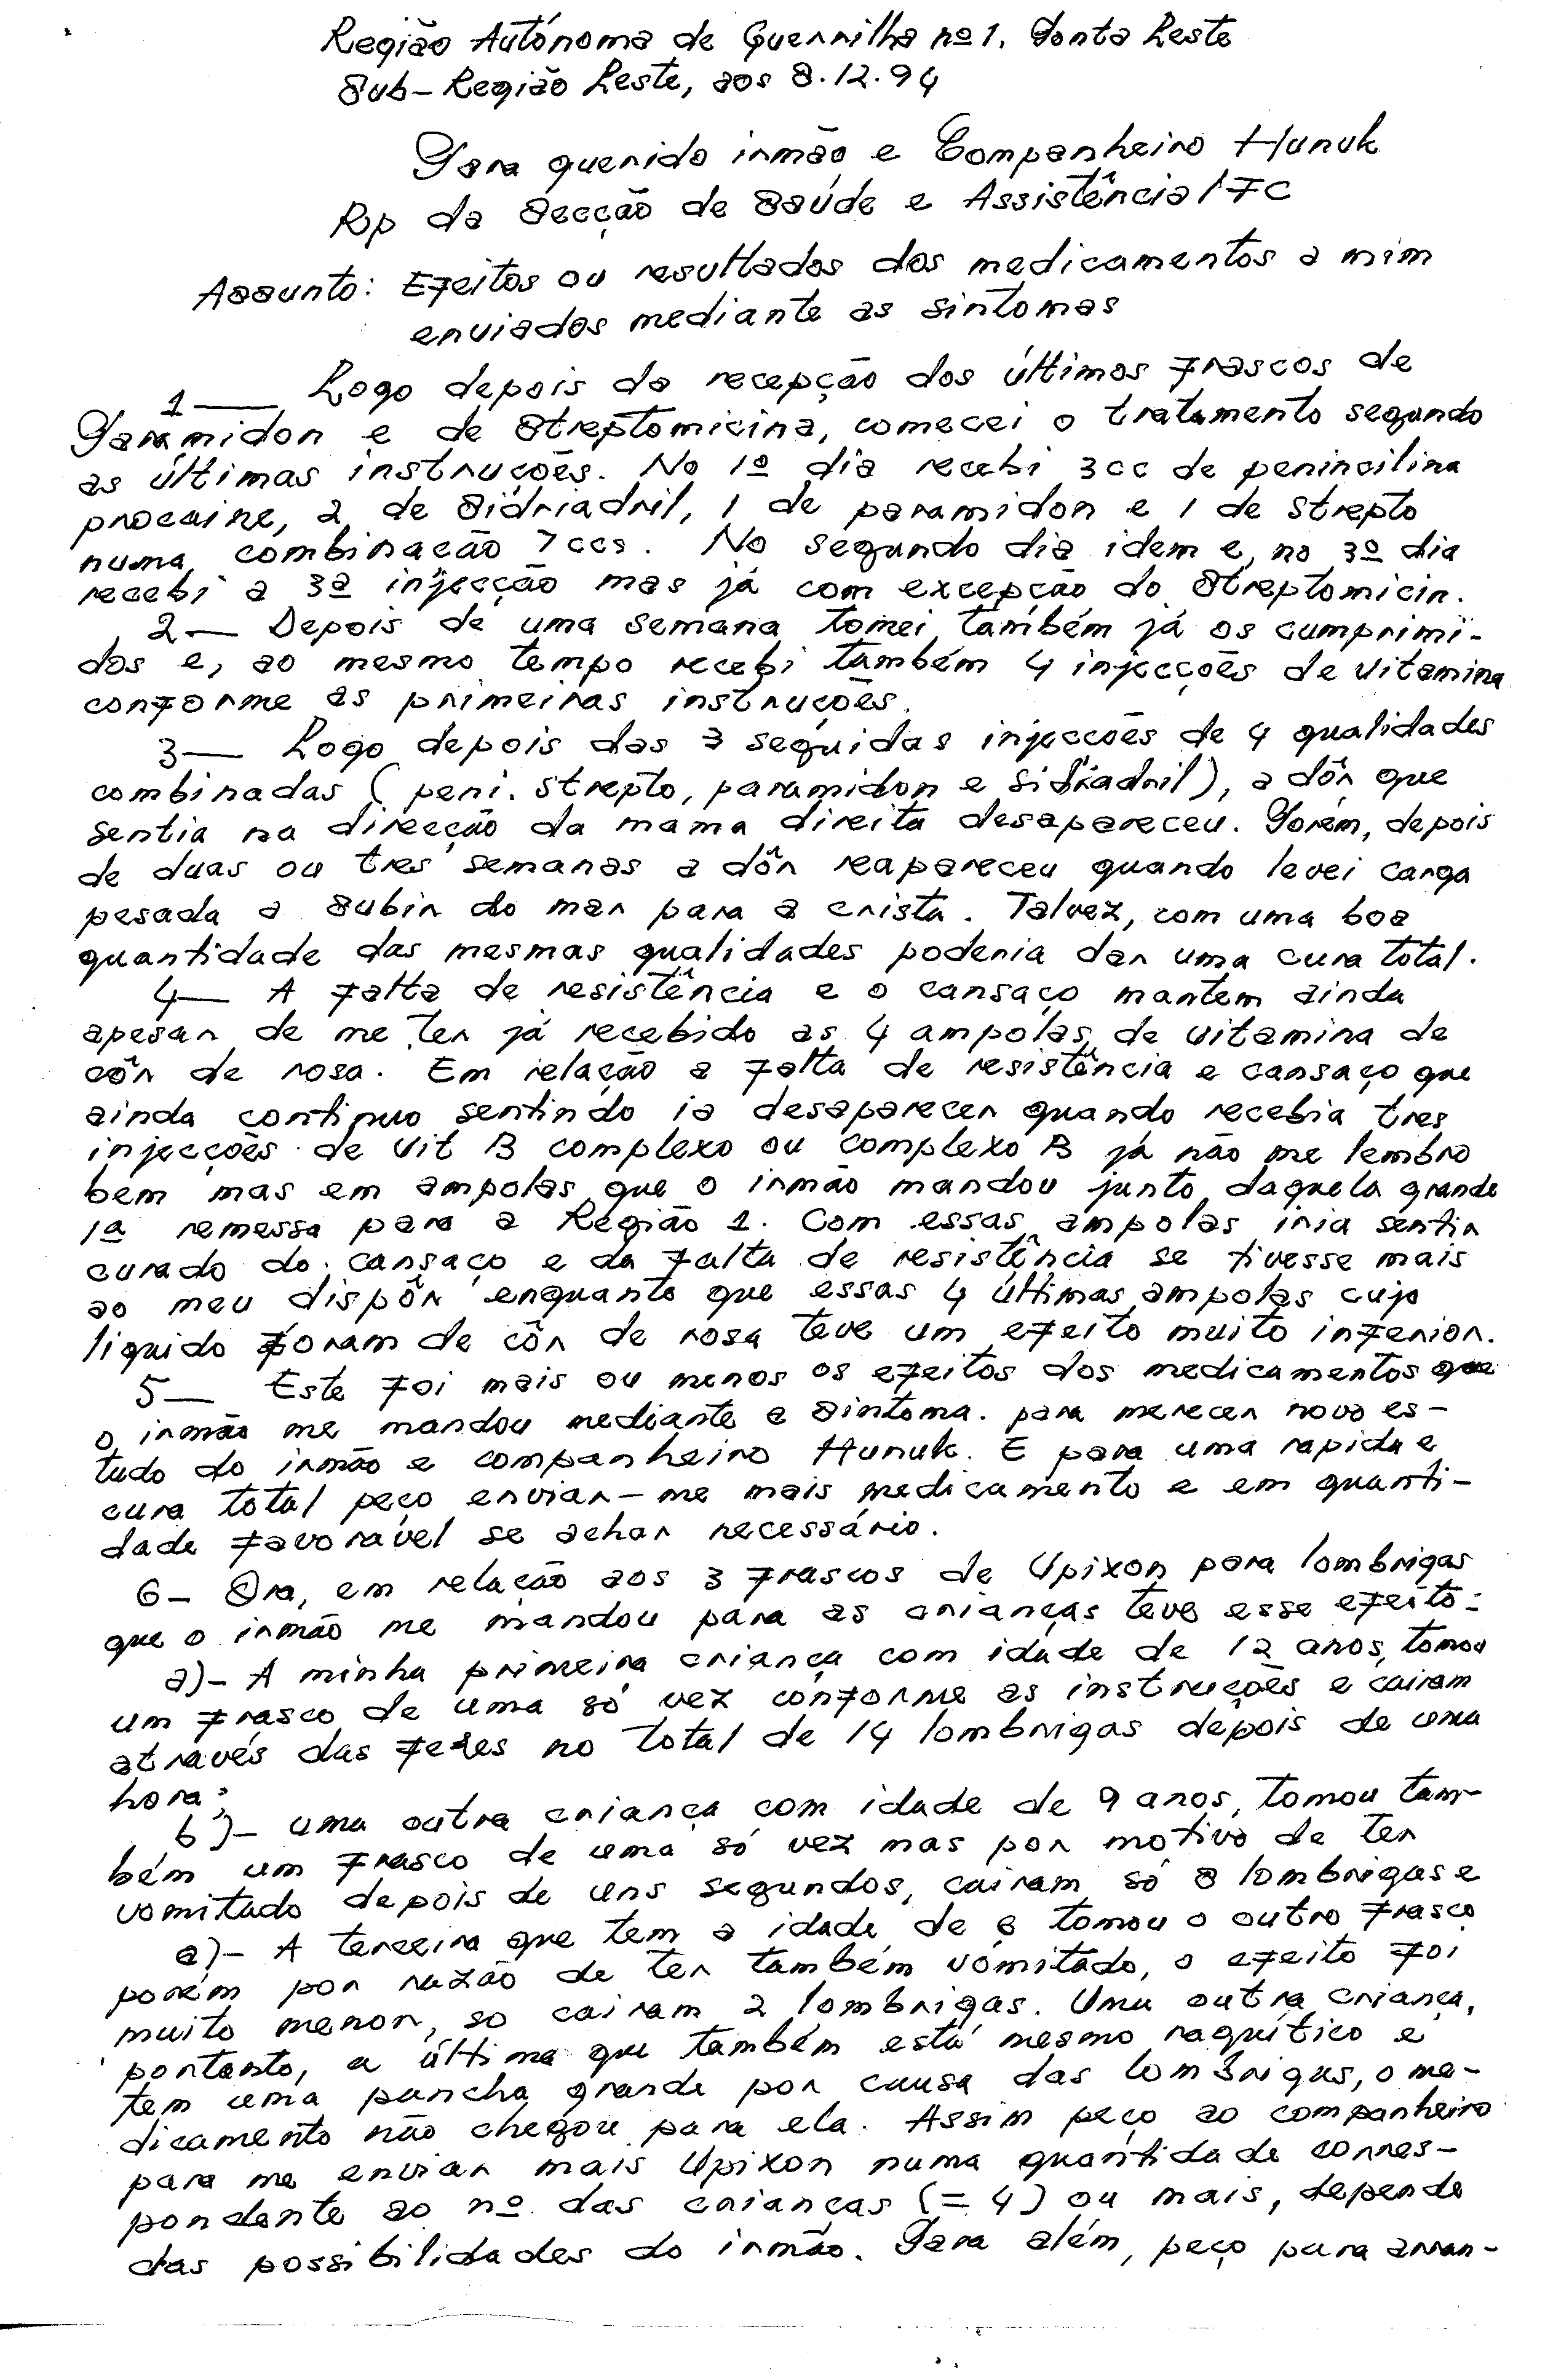 Região Autónoma de Guerrilha nº 1, Ponta Leste
Sub-Região Leste, aos 8.12.94
Para querido irmão e Companheiro Hunuk
Rp da Secção de Saúde e Assistência/FC
Assunto: Efeitos ou resultados dos medicamentos a mim
enviados mediante as sintomas
1— Logo depois da recepção dos últimos frascos de
Paramidon e de Streptomicina, comecei o tratamento segundo
as últimas instruções. No 1º dia recebi 3cc de penincilina
procaine, 2 de Sidriadril, 1 de paramidon e 1 de strepto
numa combinação 7ccs. No segundo dia idem e, no 3º dia
recebi a 3ª injecção mas já com excepção do Streptomicin.
2— Depois de uma semana tomei também já os cumprimi-
dos e, ao mesmo tempo recebi também 4 injecções de vitamina
conforme as primeiras instruções.
3— Logo depois das 3 seguidas injecções de 4 qualidades
combinadas (peni. strepto, paramidon e sidriadril), a dôr que
sentia na direcção da mama direita desapareceu. Porém, depois
de duas ou tres semanas a dôr reapareceu quando levei carga
pesada a subir do mar para a crista. Talvez, com uma boa
quantidade das mesmas qualidades poderia dar uma cura total.
4— A falta de resistência e o cansaço mantem ainda
apesar de me ter já recebido as 4 ampolas de vitamina de
côr de rosa. Em relação a falta de resistência e cansaço que
ainda continuo sentindo ia desaparecer quando recebia tres
injecções de vit B complexo ou complexo B já não me lembro
bem mas em ampolas que o irmão mandou junto daquela grande
1ª remessa para a Região 1. Com essas ampolas iria sentir
curado do cansaço e da falta de resistência se tivesse mais
ao meu dispôr enquanto que essas 4 últimas ampolas cujo
liquido foram de côr de rosa teve um efeito muito inferior.
5— Este foi mais ou menos os efeitos dos medicamentos que
o irmão me mandou mediante a sintoma. para merecer novo es-
tudo do irmão e companheiro Hunuk. E para uma rapida e
cura total peço enviar-me mais medicamento e em quanti-
dade favorável se achar necessário.
6- Ora, em relação aos 3 frascos de Upixon para lombrigas
que o irmão me mandou para as crianças teve esse efeito:
a)- A minha primeira criança com idade de 12 anos, tomou
um frasco de uma só vez conforme as instruções e cairam
através das fezes no total de 14 lombrigas depois de uma
hora;
b)- uma outra criança com idade de 9 anos, tomou tam-
bém um frasco de uma só vez mas por motivo de ter
vomitado depois de uns segundos, cairam só 8 lombrigas e
c)- A terceira que tem a idade de 6 tomou o outro frasco
porém por razão de ter também vómitado, o efeito foi
muito menor, so cairam 2 lombrigas. Uma outra criança,
portanto, a última que também está mesmo raquítico e
tem uma pancha grande por causa das lombrigas, o me-
dicamento não chegou para ela. Assim peço ao companheiro
para me enviar mais Upixon numa quantidade corres-
pondente ao nº das crianças (=4) ou mais, depende
das possibilidades do irmão. Para além, peço para arran-